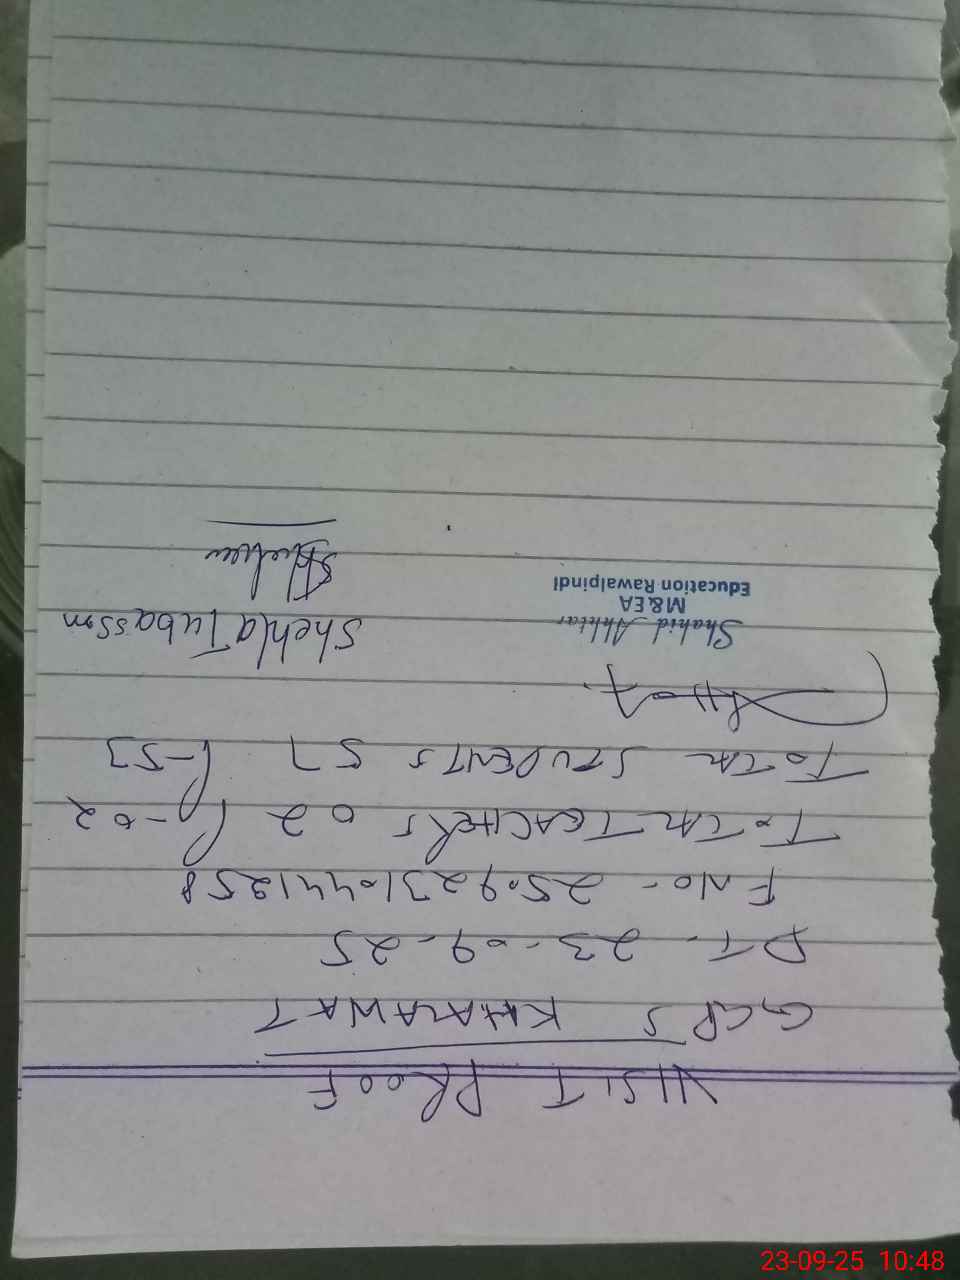 VISIT PROOF
GGPS KHALAWAT
DT- 23-09-25
F NO- 25092310441258
TOTAL TEACHERS 02 P-02
TOTAL STUDENTS 57 P-53
Shahid Akhtar
M&EA
Education Rawalpindi
Shehla Tubassom
23-09-25 10:48